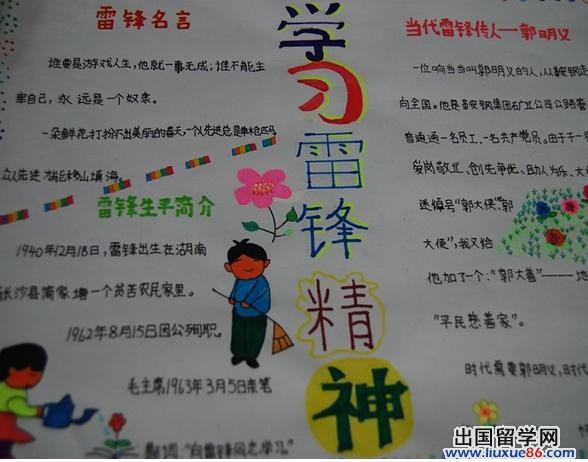 雷锋名言
谁要是游戏人生，他就一事无成；谁不能主
宰自己，永远是一个奴隶。
一朵鲜花打扮不出美丽的春天，一个人先进总是单枪匹马，
众人先进才能移山填海。
雷锋生平简介
1940年12月18日，雷锋出生在湖南
长沙县简家塘一个贫苦农民家里。
1962年8月15日因公殉职。
毛主席1963年3月5日亲笔
题词："向雷锋同志学习"
学习雷锋精神
当代雷锋传人—郭明义
一位响当当叫郭明义的人，从鞍钢走
向全国。他是鞍钢集团矿业公司公路管
普通通一名员工、一名共产党员。由于一
爱岗敬业、创先争优、助人为乐、大
送绰号"郭大侠"。郭
大侠"，我又给
他加了一个："郭大善"——地
"平民慈善家"。
时代需要郭明义，时
出国留学网
www.liuxue86.com